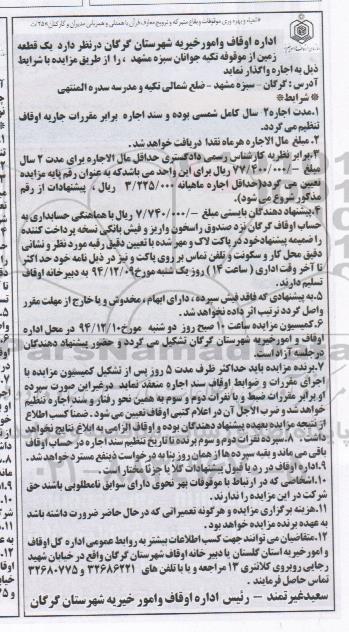 «احیاء و بهره وری موقوفات و بقاع متبرکه و ترویج معارف قرآن با همدلی و همزبانی مدیران و کارکنان» ۲۵۸ات
اداره اوقاف وامور خیریه شهرستان گرگان درنظر دارد یک قطعه
زمین از موقوفه تکیه جوانان سبزه مشهد ، را از طریق مزایده با شرایط
ذیل به اجاره واگذار نماید
آدرس : گرگان – سبزه مشهد – ضلع شمالی تکیه و مدرسه سدره المنتهی
* شرایط*
۱.مدت اجاره۲ سال کامل شمسی بوده و سند اجاره برابر مقررات جاریه اوقاف
تنظیم می گردد.
۲. مبلغ مال الاجاره هرماه نقدا دریافت خواهد شد .
۳.برابر نظریه کارشناس رسمی دادگستری حداقل مال الاجاره برای مدت ۲ سال
مبلغ –/۷۷/۴۰۰/۰۰۰ ریال برای این واحد می باشدکه به عنوان رقم پایه مزایده
تعیین می گردد(حداقل اجاره ماهیانه ۳/۲۲۵/۰۰۰ ریال ، پیشنهادات از رقم
مذکور شروع می شود).
۴.پیشنهاد دهندگان بایستی مبلغ –/۷/۷۴۰/۰۰۰ ریال با هماهنگی حسابداری به
حساب اوقاف گرگان نزد صندوق راسخون واریز و فیش بانکی نسخه پرداخت کننده
را ضمیمه پیشنهادخود در پاکت لاک و مهر شده با تعیین دقیق رقبه مورد نظر و نشانی
دقیق محل کار و سکونت و تلفن تماس بر روی پاکت و نیز در ذیل نامه خود حداکثر
تا آخر وقت اداری ( ساعت ۱۴ ) روز یک شنبه مورخ ۹۴/۱۲/۰۹ به دبیرخانه اوقاف
تسلیم دارند.
۵.به پیشنهادی که فاقد فیش سپرده ، دارای ابهام ، مخدوش و یا خارج از مهلت مقرر
واصل گردد ترتیب اثر داده نخواهد شد.
۶.کمیسیون مزایده ساعت ۱۰ صبح روز دو شنبه مورخ۹۴/۱۲/۱۰ در محل اداره
اوقاف و امور خیریه شهرستان گرگان تشکیل می گردد و حضور پیشنهاد دهندگان
در جلسه آزاد است.
۷.برنده مزایده باید حداکثر ظرف مدت ۵ روز پس از تشکیل کمیسیون مزایده با
اجرای مقررات و ضوابط اوقاف سند اجاره منعقد نماید درغیر این صورت سپرده
او برابر مقررات ضبط و با نفرات دوم و سوم به همین نحو رفتار و سند اجاره تنظیم
خواهد شد و ضرب الاجل آن در اعلام کتبی اوقاف تعیین می شود . ضمنا کسب اطلاع
از نتیجه مزایده بعهده پیشنهاد دهندگان بوده و اوقاف الزامی به ابلاغ نتایج نخواهد
داشت . ۸.سپرده نفرات دوم و سوم برنده تا تاریخ تنظیم سند اجاره در حساب اوقاف
باقی می ماند و بقیه سپرده ها از همان روز بنا به درخواست ذینفع مسترد خواهد شد .
۹.اداره اوقاف در رد یا قبول پیشنهادات کلاً یا جزئاً مختار است .
۱۰.اشخاصی که در ارتباط با موقوفات بهر نحوی دارای سوابق نامطلوبی باشند حق
شرکت در این مزایده را ندارند .
۱۱.هزینه برگزاری مزایده و هرگونه تعمیراتی که در حال حاضر ضرورت داشته باشد
به عهده برنده مزایده خواهد بود .
۱۲.متقاضیان می توانند جهت کسب اطلاعات بیشتر به روابط عمومی اداره کل اوقاف
و امور خیریه استان گلستان یا دبیر خانه اوقاف شهرستان گرگان واقع در خیابان شهید
رجایی روبروی کلانتری ۱۳ مراجعه و یا با تلفن های ۳۲۶۸۶۲۲۱ و ۳۲۶۸۰۷۷۵
تماس حاصل فرمایند .
سعید غیرتمند – رئیس اداره اوقاف وامور خیریه شهرستان گرگان